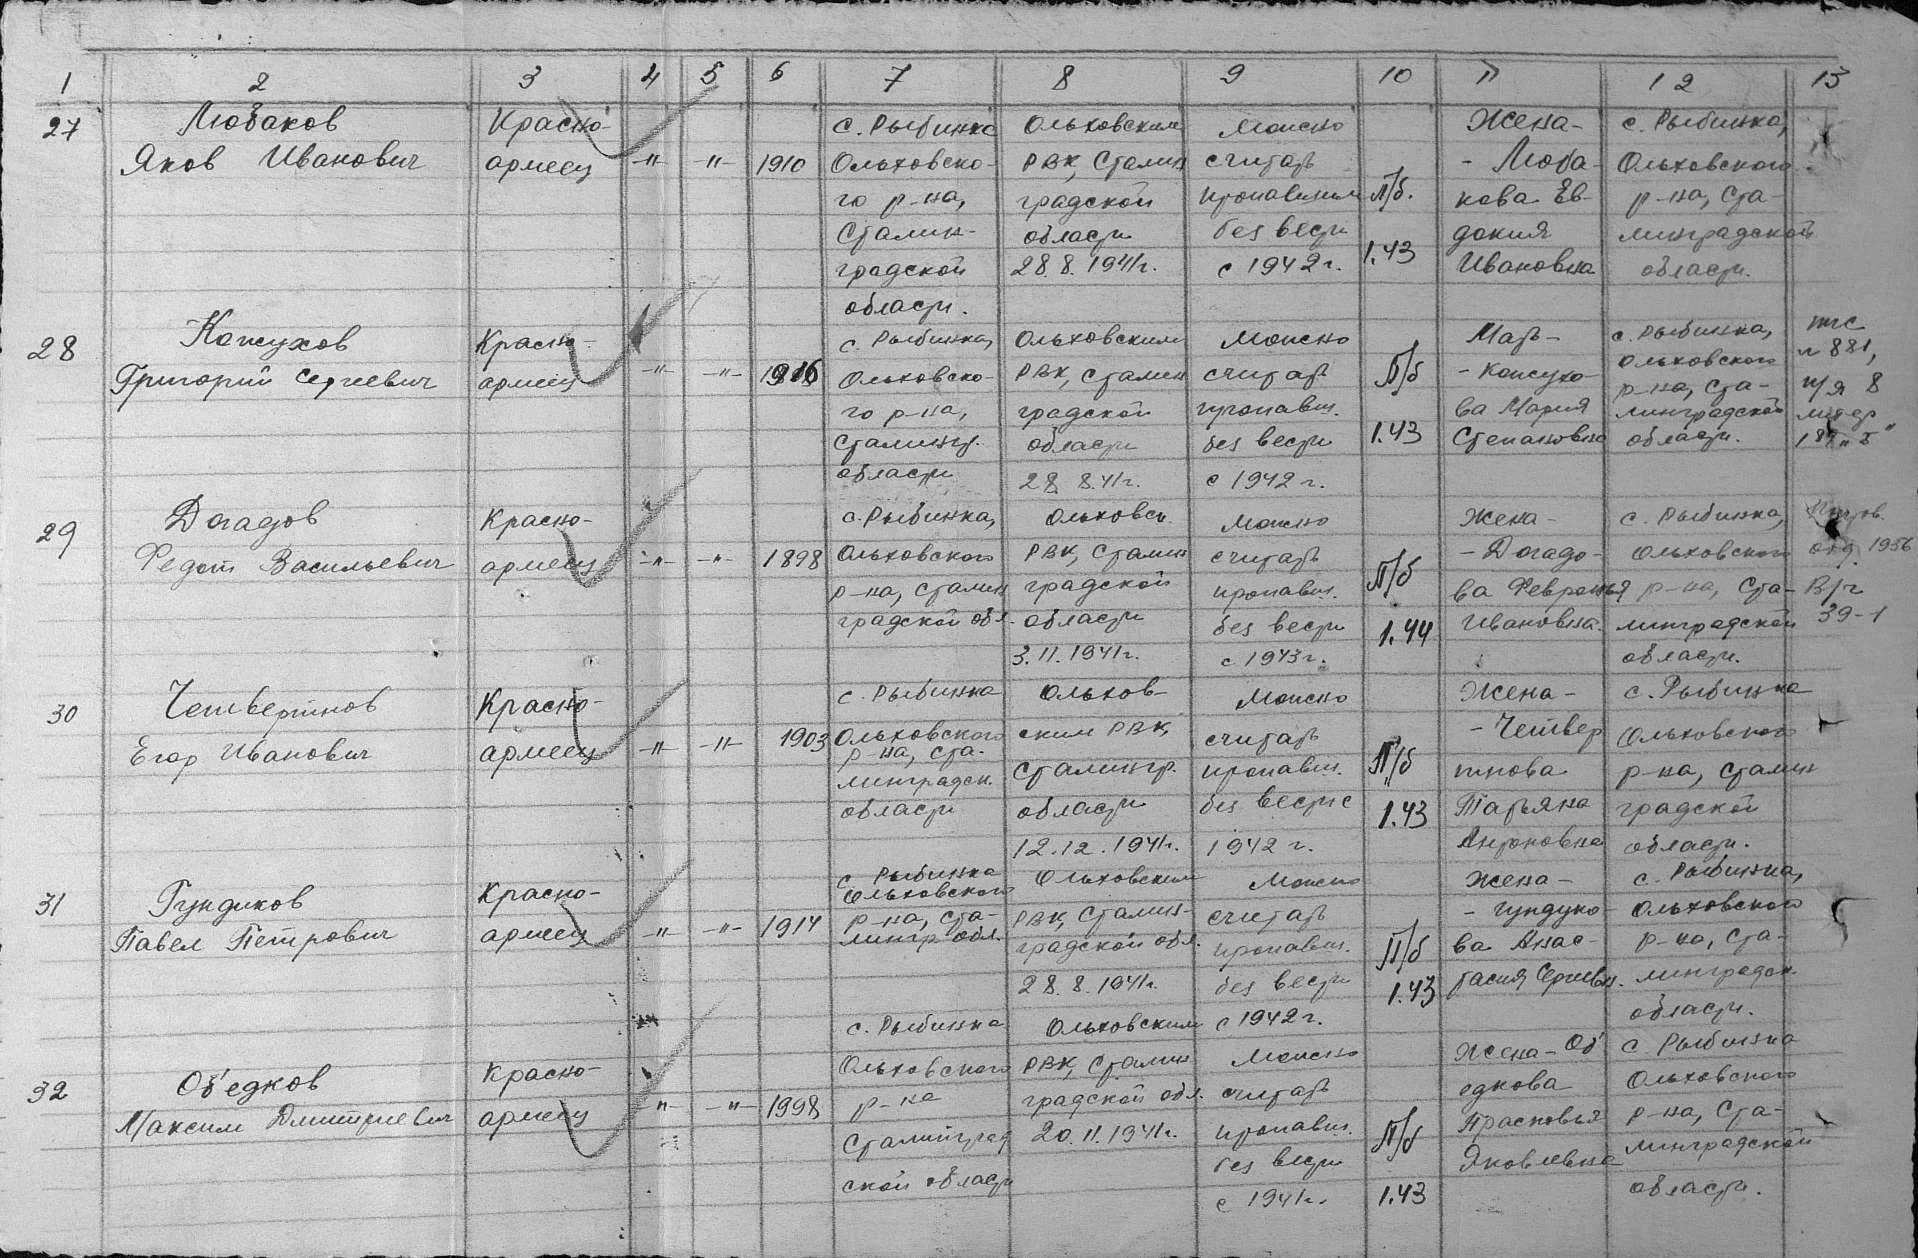 1 2 3 4 5 6 7 8 9 10 11 12 13
27
Любаков
Яков Иванович
Красно-
армеец
-"- -"- 1910
с. Рыбинка
Ольховско-
го р-на,
Сталин-
градской
области.
Ольховским
РВК, Сталин
градской
области
28.8.1941г.
Можно
считать
пропавшим
без вести
с 1942г.
П/б.
1.43
Жена-
- Люба-
кова Ев-
докия
Ивановна
с. Рыбинка,
Ольховского
р-на, Ста-
линградской
области.
28
Кажухов
Григорий Сергеевич
Красно-
армеец
-"- -"- 1916
с. Рыбинка,
Ольховско-
го р-на,
Сталингр.
области
Ольховским
РВК, Сталин
градской
области
28.8.41г.
Можно
считать
пропавш.
без вести
с 1942г.
П/б
1.43
Мать-
- Кожухо-
ва Мария
Степановна
с. Рыбинка,
Ольховского
р-на, Ста-
линградской
области.
п/я 8
29
Догадов
Федот Васильевич
Красно-
армеец
-"- -"- 1898
с. Рыбинка,
Ольховского
р-на, Сталин
градской обл.
Ольховск.
РВК, Сталин
градской
области
3.11.1941г.
Можно
считать
пропавш.
без вести
с 1943г.
П/б
1.44
Жена-
- Догадо-
ва Февронья
Ивановна.
с. Рыбинка,
Ольховского
р-на, Ста-
линградской
области.
1956
39-1
30
Четвертнов
Егор Иванович
Красно-
армеец
-"- -"- 1903
с. Рыбинка
Ольховского
р-на, Ста-
линградск.
области
Ольхов-
ским РВК,
Сталингр.
области
12.12.1941г.
Можно
считать
пропавш.
без вести с
1942г.
П/б
1.43
Жена-
- Четвер
тнова
Татьяна
Антоновна
с. Рыбинка
Ольховского
р-на, Сталин
градской
области.
31
Гундиков
Павел Петрович
Красно-
армеец
-"- -"- 1914
с. Рыбинка
Ольховского
р-на, Ста-
лингр обл.
Ольховским
РВК, Сталин-
градской обл.
28.8.1941г.
Можно
считать
пропавш.
без вести
с 1942г.
П/б
1.43
Жена-
- Гундуко-
ва Анас-
тасия Сергеевн.
с. Рыбинка,
Ольховского
р-на, Ста-
линградск.
области.
32
Об'едков
Максим Дмитриевич
Красно-
армеец
-"- -"- 1998
с. Рыбинка
Ольховского
р-на
Сталинград
ской области
Ольховским
РВК, Сталин
градской обл.
20.11.1941г.
Можно
считать
пропавш.
без вести
с 1941г.
П/б
1.43
Жена-Об'
едкова
Прасковья
Яковлевна
с. Рыбинка
Ольховского
р-на, Ста-
линградской
области.